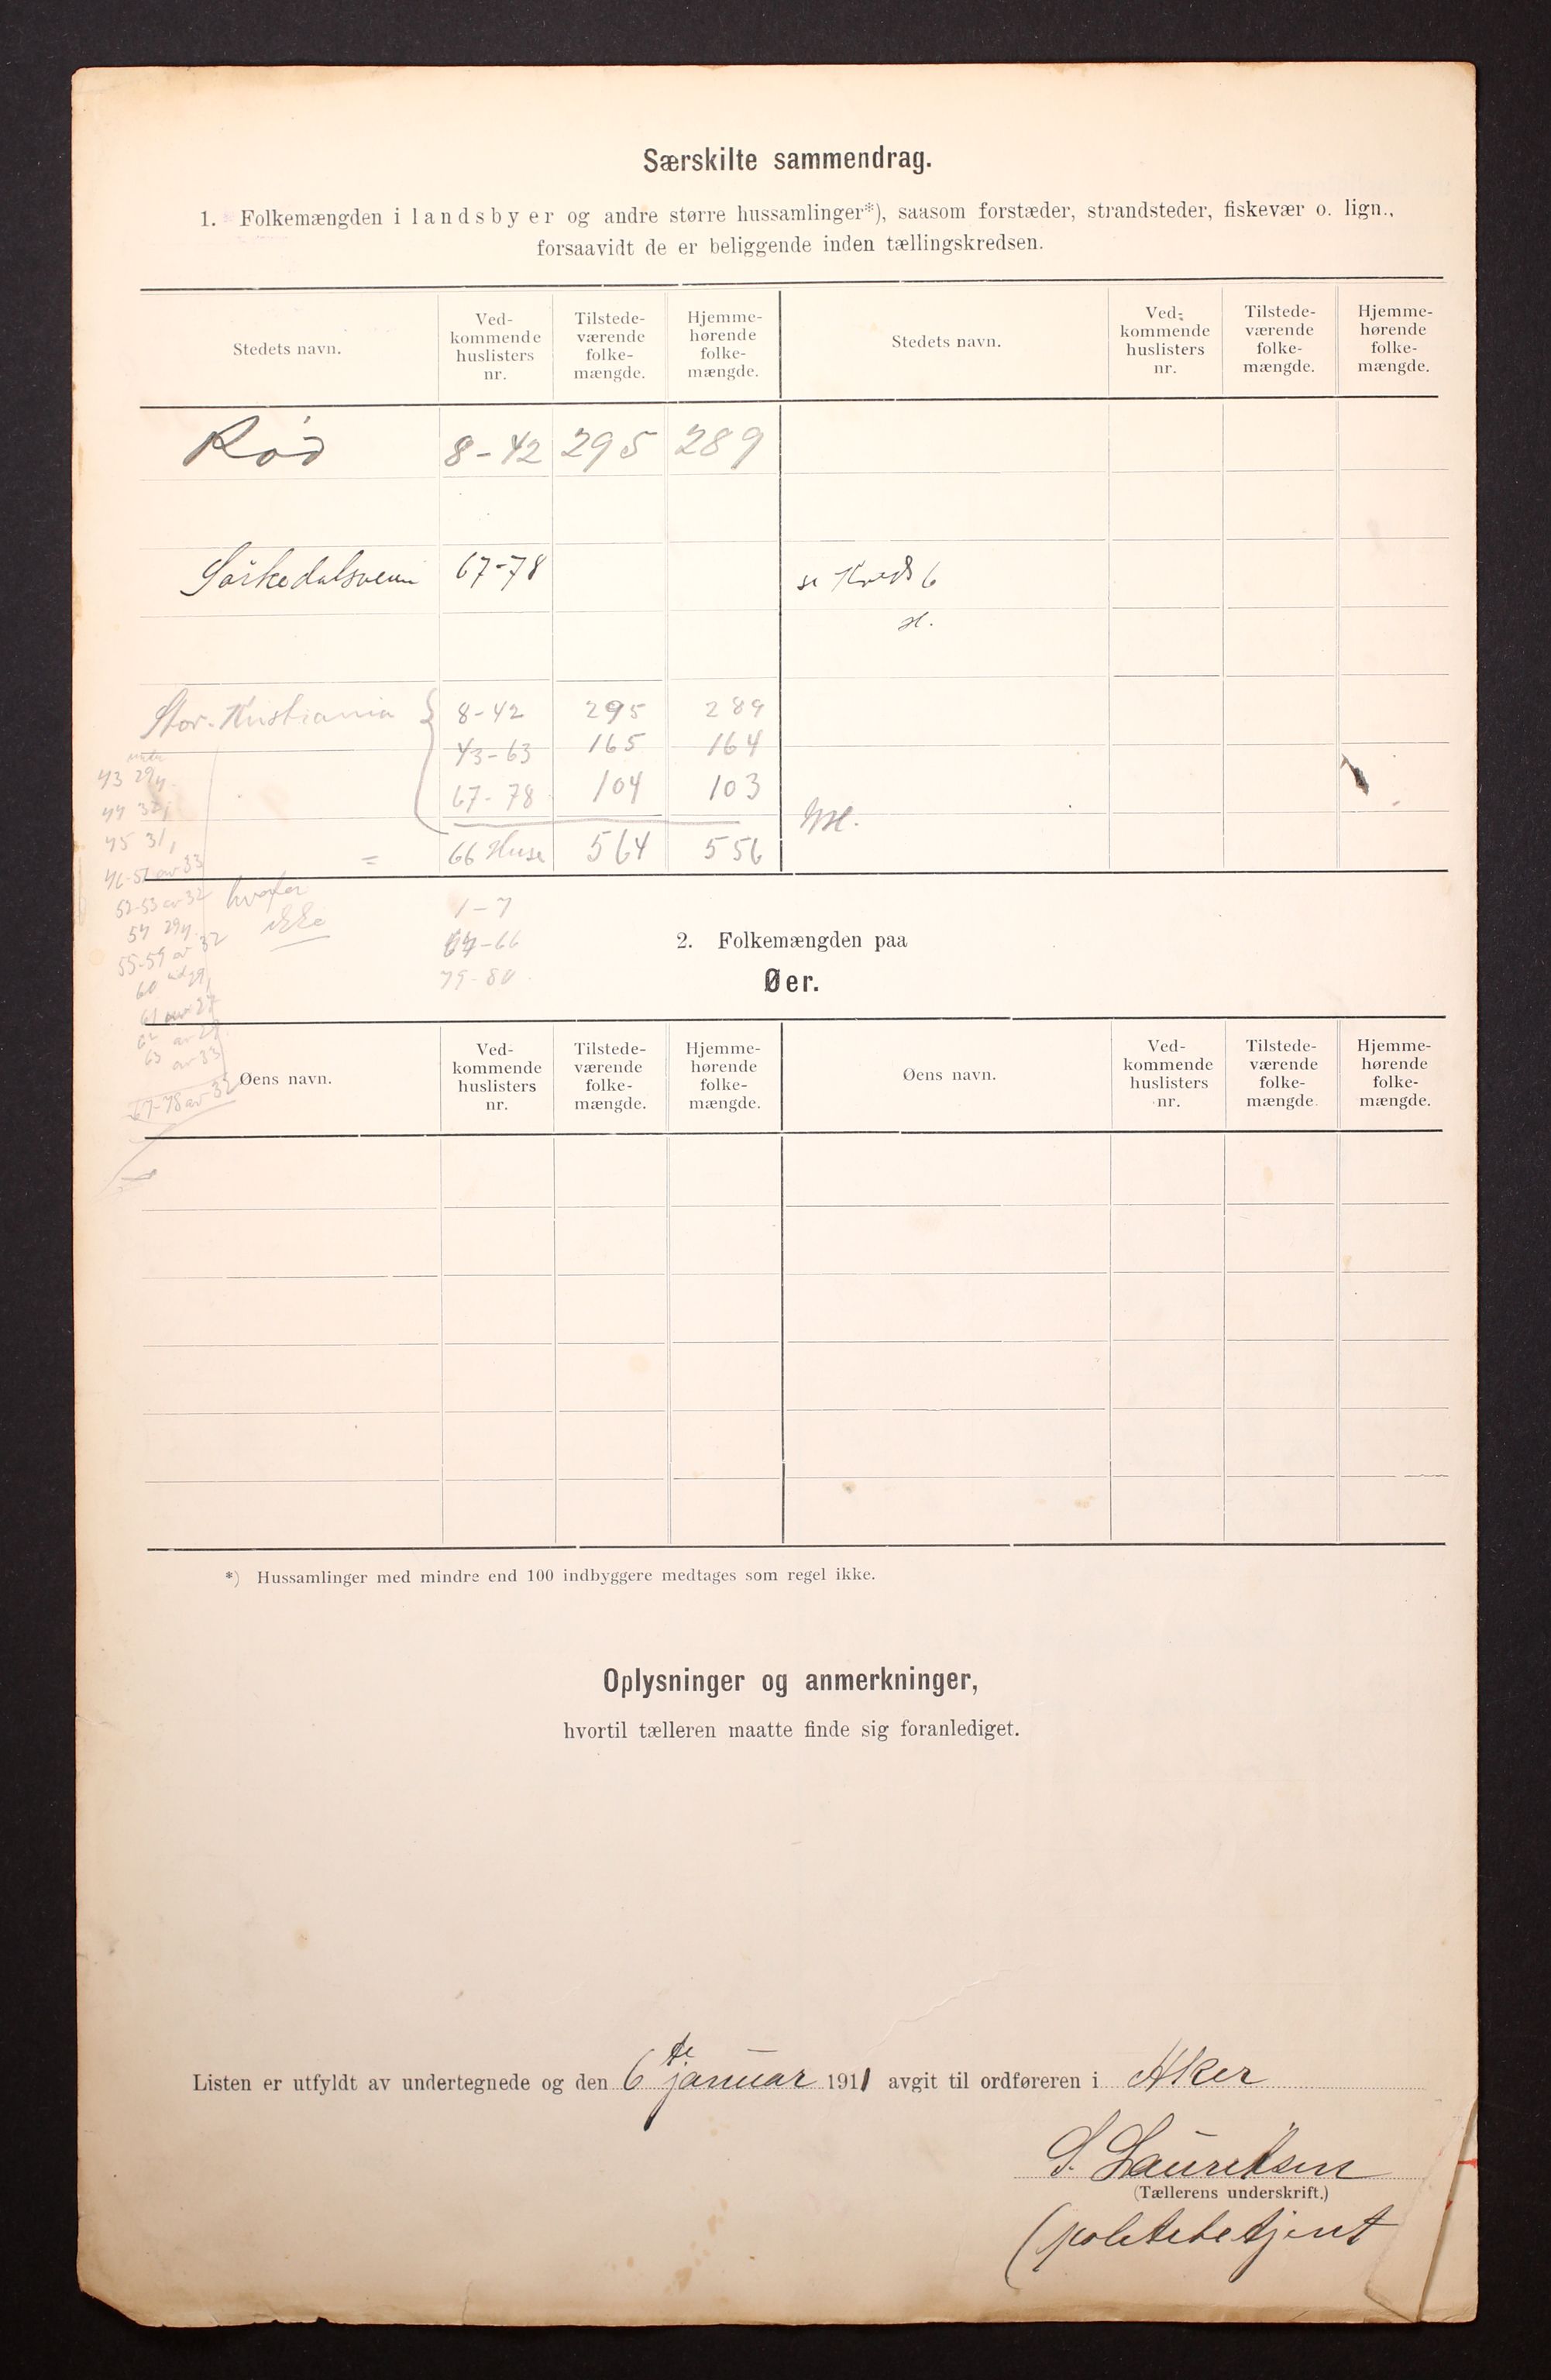 Særskilte sammendrag.
1. Folkemængden i landsbyer og andre større hussamlinger*), saasom forstæder, strandsteder, fiskevær o. lign.,
forsaavidt de er beliggende inden tællingskredsen.
Stedets navn.
Ved-
kommende
huslisters
nr.
Tilstede-
værende
folke-
mængde.
Hjemme-
hørende
folke-
mængde.
Stedets navn.
Ved-
kommende
huslisters
nr.
Tilstede-
værende
folke-
mængde.
Hjemme-
hørende
folke-
mængde.
Rød 8-42 295 289
Sørkedalsveien 67-78 se Kreds 6
Stor-Kristiania 8-42 295 289
43-63 165 164
67-78 104 103
= 66 Huse 564 556
43 29
44 32
45 31
46-51 av 33
52-53 av 32
54 29
55-59 av 32
60
61 av 27
62 av 29
63 av 33
67-78 av 32
hvorfor
ikke
1-7
64-66
79-80
2. Folkemængden paa
Øer.
Øens navn.
Ved-
kommende
huslisters
nr.
Tilstede-
værende
folke-
mængde.
Hjemme-
hørende
folke-
mængde.
Øens navn.
Ved-
kommende
huslisters
nr.
Tilstede-
værende
folke-
mængde.
Hjemme-
hørende
folke-
mængde.
*) Hussamlinger med mindre end 100 indbyggere medtages som regel ikke.
Oplysninger og anmerkninger,
hvortil tælleren maatte finde sig foranlediget.
Listen er utfyldt av undertegnede og den 6te januar 1911 avgit til ordføreren i Aker
S. Lauritsen
(Tællerens underskrift.)
(politibetjent